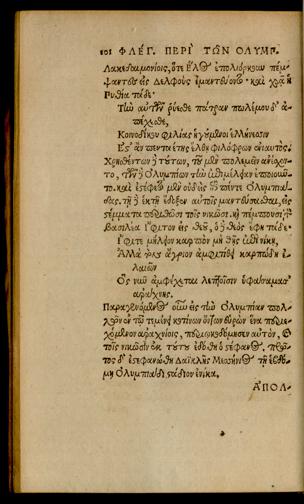 101 ΦΛΕΓ. ΠΕΡΙ ΤΩΝ ΟΛΥΜΠ.
Λακεδαιμονίοις, ὅτε Ἕλος ἐπολιόρκουν πέμ-
ψαντες ἐς Δελφοὺς ἐμαντεύοντο· καὶ χρᾷ ἡ
Πυθία τάδε·
Τὴν αὐτῶν ῥύεσθε πάτραν πολέμου δ' ἀ-
πέχεσθε,
Κοινοδίκου φιλίας ἡγούμενοι ἑλλήνεσσιν
Ἔς τ' ἂν πενταέτης ἔλθῃ φιλόφρων ἐνιαυτός.
Χρησθέντων δὲ τούτων, τῶν μὲν πολεμεῖν ἀπέσχον-
το, τῶν δὲ Ὀλυμπίων τὴν ἐπιμέλειαν ἐποιοῦν-
το. καὶ ἐστέφετο μὲν οὐδεὶς ἐπὶ πέντε Ὀλυμπιά-
δας. τῇ δὲ ἕκτῃ ἔδοξεν αὐτοῖς μαντεύσασθαι, εἰ
στέμματα περιθῶσι τοῖς νικῶσι. καὶ πέμπουσι τὸν
βασιλέα Ἴφιτον εἰς θεοῦ, ὁ δὲ θεὸς ἔφη τάδε·
Ἴφιτε μήλειον καρπὸν μὴ θῇς ἐπὶ νίκῃ,
Ἀλλὰ τὸν ἄγριον ἀμφιτίθει καρπώδη ἐ-
λαιῶν
Ὃς νῦν ἀμφέχεται λεπτοῖσιν ὑφάσμασι
ἀράχνης.
Παραγενόμενος οὖν εἰς τὴν Ὀλυμπίαν πολ-
λῶν ὄντων ἐν τῷ τεμένει κοτίνων εὑρὼν ἕνα περιε-
χόμενον ἀραχνίοις, περιῳκοδόμησεν αὐτόν. καὶ
τοῖς νικῶσιν ἐκ τούτου ἐδόθη ὁ στέφανος. πρῶ-
τος δ' ἐστεφανώθη Δαϊκλῆς Μεσσήνιος τῇ ἑβδό-
μῃ Ὀλυμπιάδι στάδιον ἐνίκα.
ἈΠΟΛ-